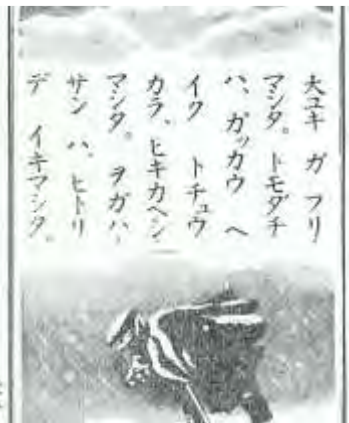 大ユキ ガ フリ
マシタ。トモダチ
ハ、ガッカウ ヘ
イク トチュウ
カラ、ヒキカヘシ
マシタ。ヲガハ
サン ハ、ヒトリ
デ イキマシタ。